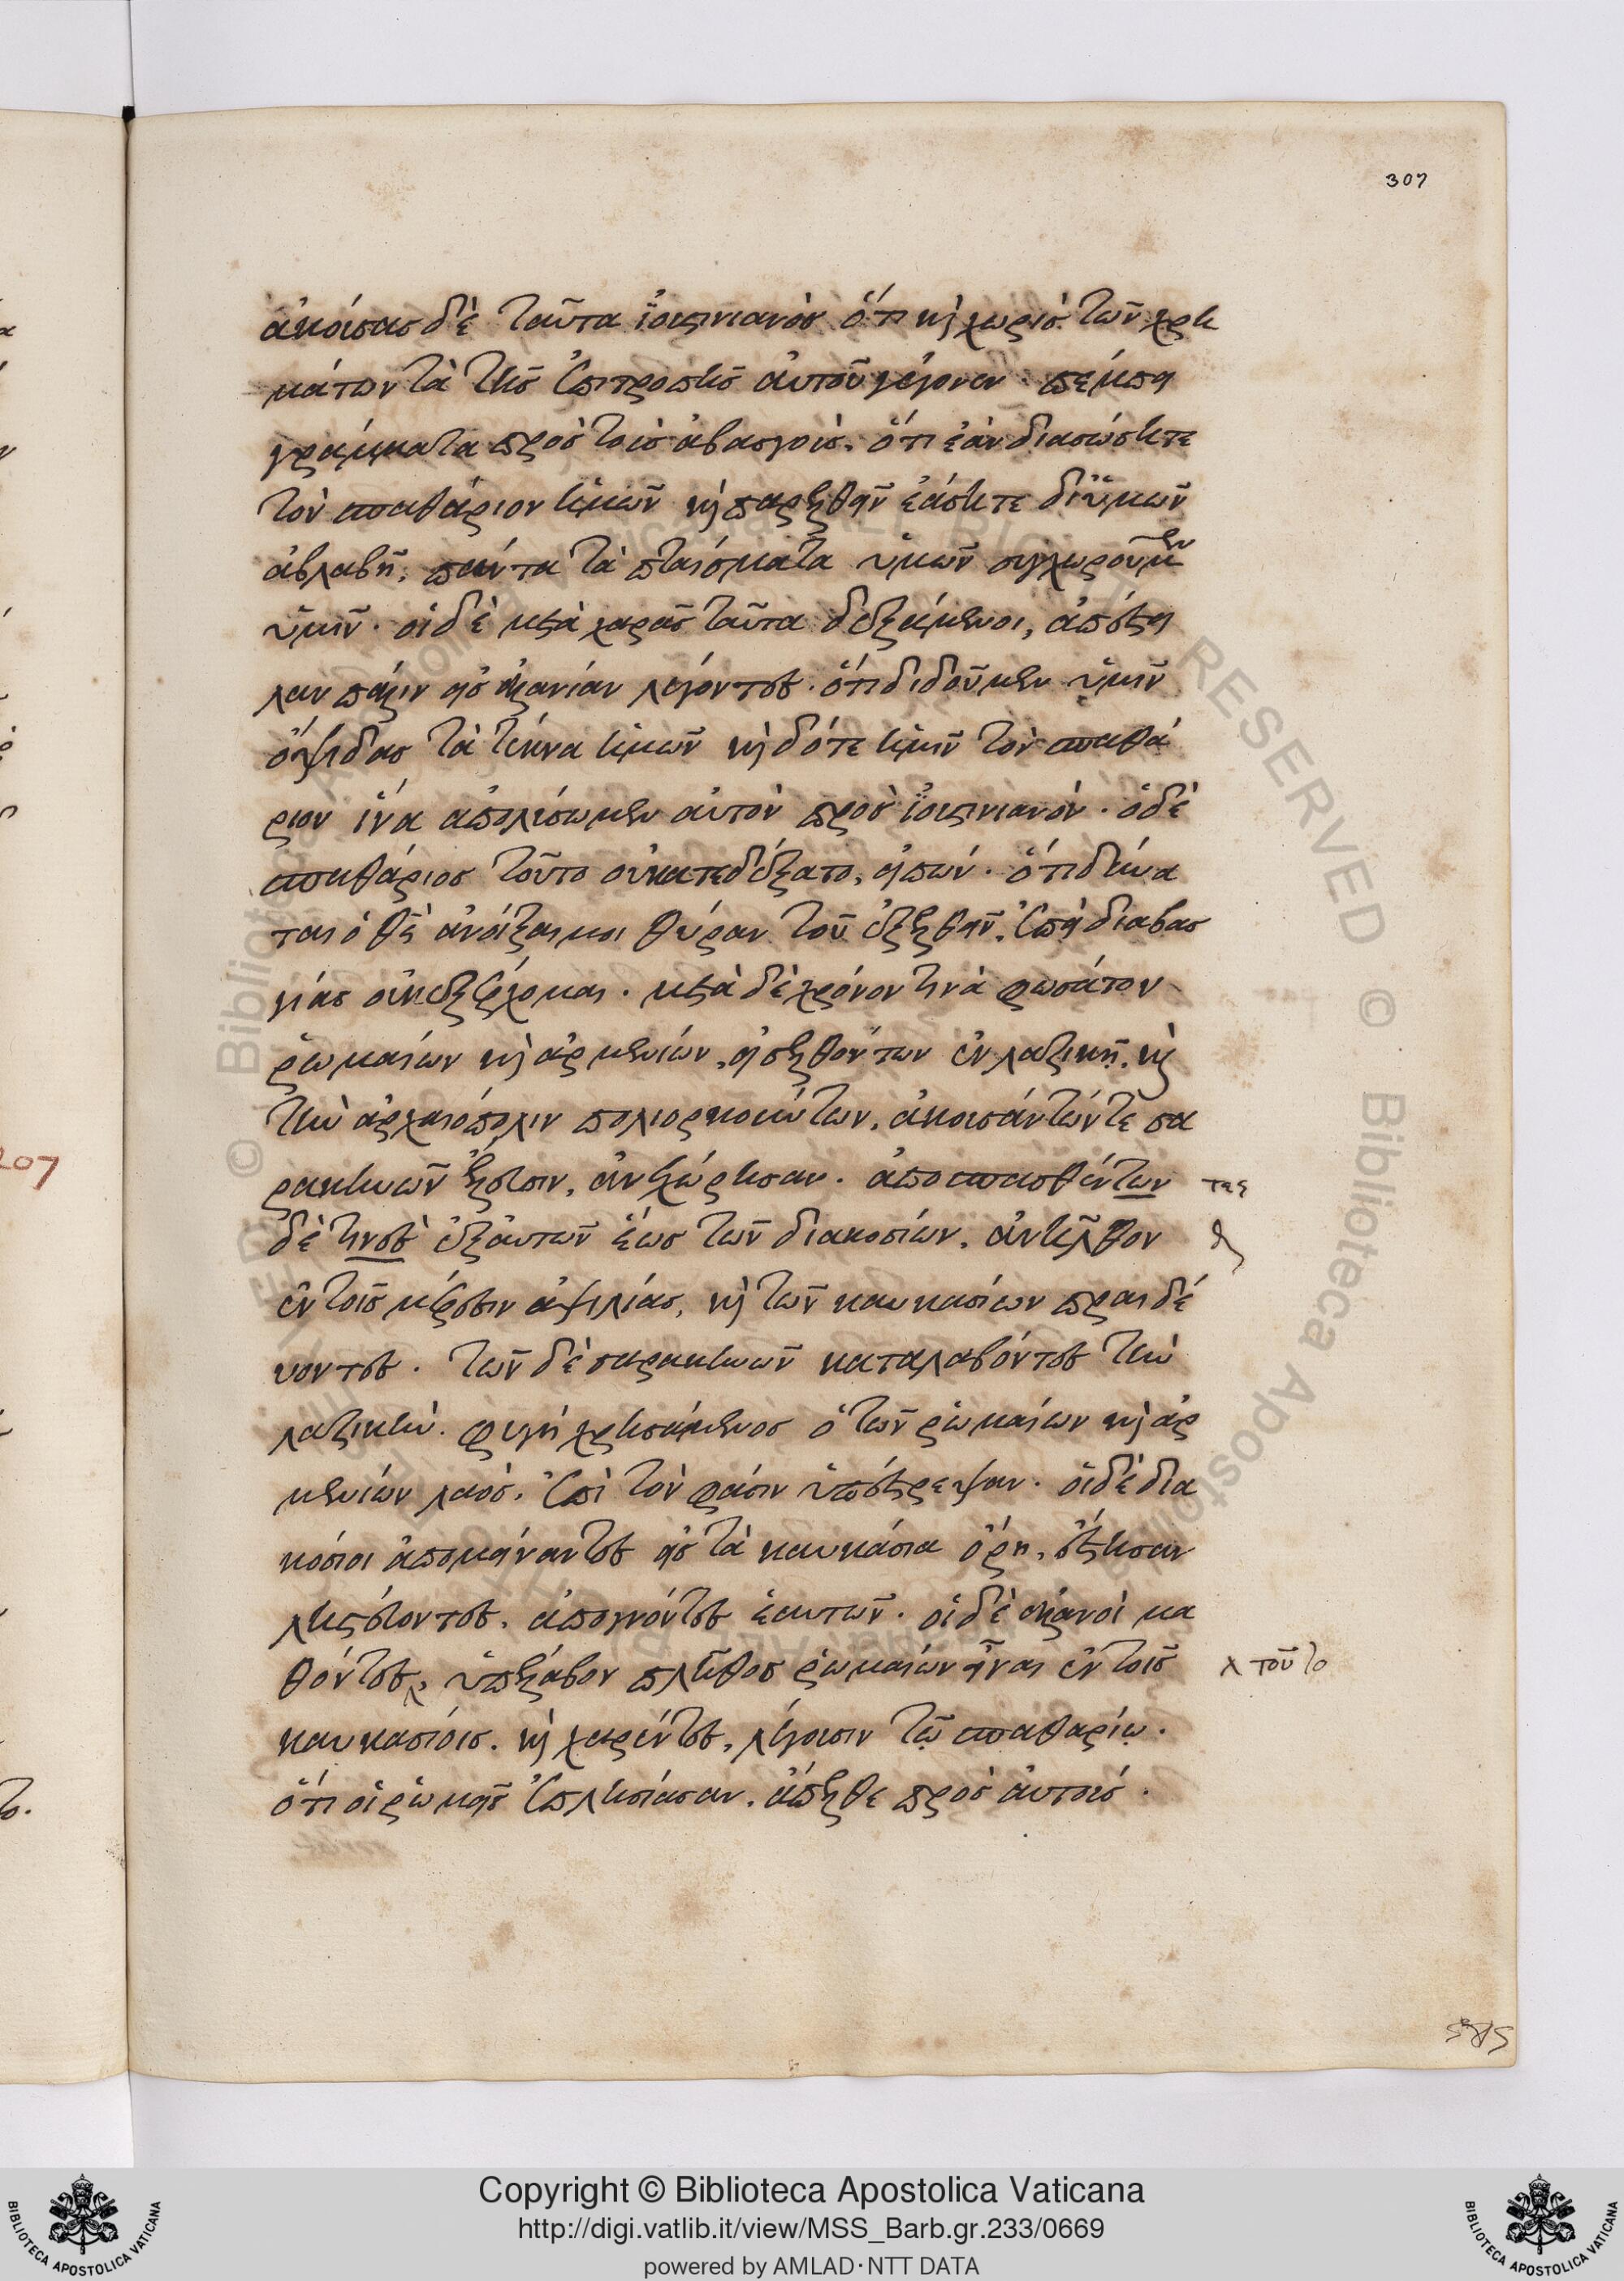 307
ἀκούσας δὲ ταῦτα ἰουστινιανὸς ὅτι καὶ χωρὶς τῶν χρη
μάτων τὰ τῆς ἐπιτροπῆς αὐτοῦ γέγονεν. πέμπει
γράμματα πρὸς τοὺς ἀβασγούς. ὅτι ἐὰν διασώσητε
τὸν σπαθάριον ἡμῶν καὶ παρελθεῖν ἐάσητε δι' ὑμῶν
ἀβλαβῆ, πάντα τὰ πταίσματα ὑμῶν συγχωροῦμεν
ὑμῖν. οἱ δὲ μετὰ χαρᾶς ταῦτα δεξάμενοι, ἀπέστει
λαν πάλιν εἰς ἀλανίαν λέγοντες. ὅτι διδοῦμεν ὑμῖν
ὄψιδας τὰ τέκνα ἡμῶν καὶ δότε ἡμῖν τὸν σπαθά
ριον ἵνα ἀπολύσωμεν αὐτὸν πρὸς ἰουστινιανόν. ὁ δὲ
σπαθάριος τοῦτο οὐ κατεδέξατο, εἰπών. ὅτι δύνα
ται ὁ θς ἀνοίξαι μοι θύραν τοῦ ἐξελθεῖν. ἐπεὶ δι' ἀβασ
γίας οὐκ ἐξέρχομαι. μετὰ δὲ χρόνον τινὰ φωσάτον
ῥωμαίων καὶ ἀρμενίων, εἰσελθόντων ἐν λαζικῇ. καὶ
τὴν ἀρχαιόπολιν πολιορκούντων, ἀκουσάντών τε σα
ρακηνῶν ἔλευσιν, ἀνεχώρησαν. ἀποσπασθέντων τες
δὲ τινες ἐξ αὐτῶν ἕως τῶν διακοσίων, ἀνῆλθον
ἐν τοῖς μέρεσιν ἀψιλίας, καὶ τῶν καυκασίων πραιδέ
υοντες. τῶν δὲ σαρακηνῶν καταλαβόντες τὴν
λαζικὴν. φυγῇ χρησάμενος ὁ τῶν ῥωμαίων καὶ ἀρ
μενίων λαὸς, ἐπὶ τὸν φάσιν ὑπέστρεψαν. οἱ δὲ δια
κόσιοι ἀπομείναντες εἰς τὰ καυκάσια ὄρη, ἔστησαν
ληστεύοντες, ἀπογνόντες ἑαυτῶν. οἱ δὲ ἀλανοὶ μα
θόντες, ὑπέλαβον πλῆθος ῥωμαίων εἶναι ἐν τοῖς τοῦτο
καυκασίοις. καὶ χαρέντες, λέγουσιν τῷ σπαθαρίῳ.
ὅτι οἱ ῥωμεῖς ἐπλησίασαν. ἄπελθε πρὸς αὐτούς.
207
© Biblioteca Apostolica Vaticana
RESERVED © Biblioteca Apostolica
Copyright © Biblioteca Apostolica Vaticana
http://digi.vatlib.it/view/MSS_Barb.gr.233/0669
powered by AMLAD·NTT DATA
BIBLIOTECA APOSTOLICA VATICANA
BIBLIOTECA APOSTOLICA VATICANA